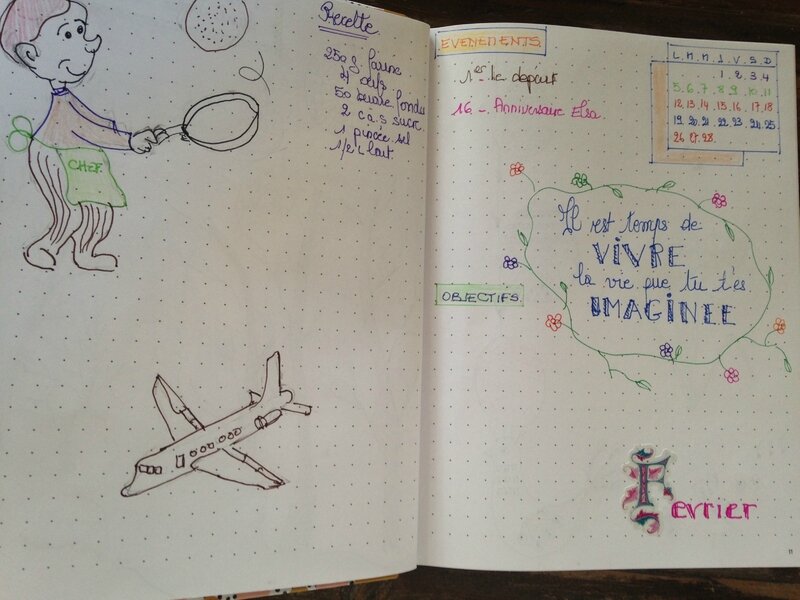 Recette
250 g farine
4 œufs
50 beurre fondu
2 c.a.s sucre
1 pincée sel
1/2 L lait
CHEF
EVENEMENTS.
1er le départ
16 - Anniversaire Elsa.
L M M J V S D
1. 2. 3. 4
5. 6. 7. 8. 9. 10. 11
12. 13. 14. 15. 16. 17. 18
19. 20. 21. 22. 23. 24. 25
26 27. 28.
Il est temps de
VIVRE
la vie que tu t'es
IMAGINEE
OBJECTIFS.
Fevrier
11